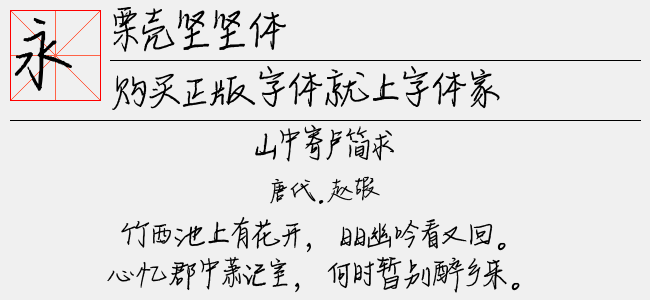 永
栗壳坚坚体
购买正版字体就上字体家
山中寄卢简求
唐代.赵嘏
竹西池上有花开，日日幽吟看又回。
心忆郡中萧记室，何时暂别醉乡来。